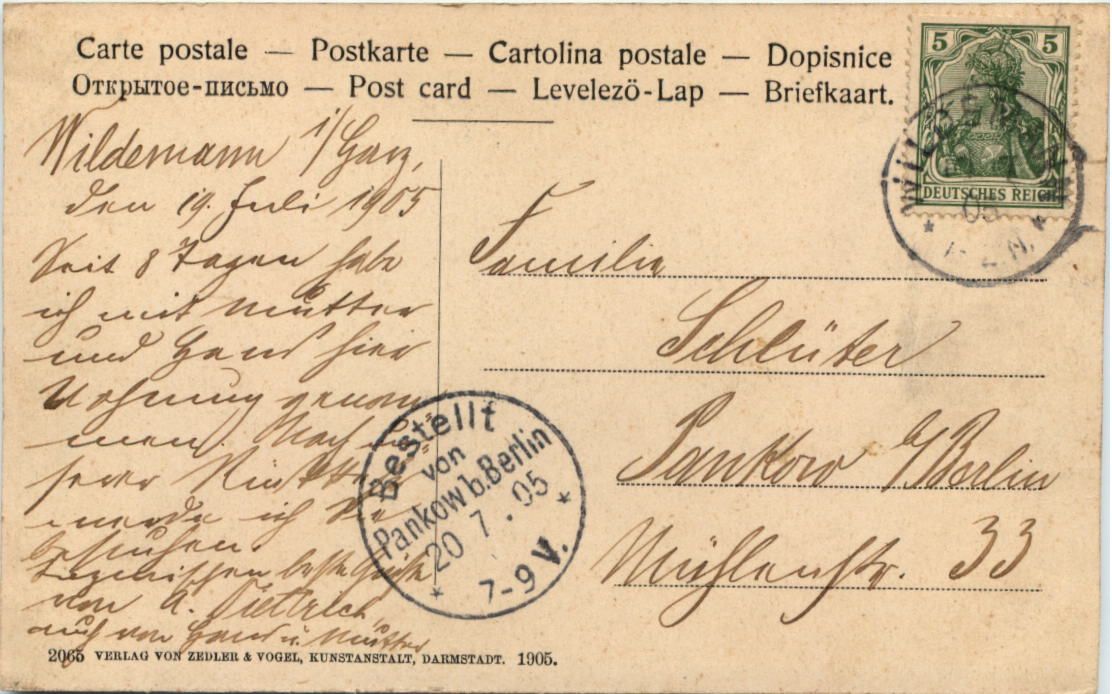 Carte postale — Postkarte — Cartolina postale — Dopisnice
Открытое-письмо — Post card — Levelező-Lap — Briefkaart.
5 5
DEUTSCHES REICH
WILDEMANN
05
* 1-2 N. *
Wildemann i/Harz,
den 19. Juli 1905
Seit 8 Tagen habe
ich mit Mutter
und Hans hier
Wohnung genom
men. Nach un
serer Rückkehr
werde ich Sie
besuchen.
Inzwischen beste Grüße
von A. Dietrich,
auch von Hans u. Mutter
Familie
Schlüter
Pankow b/Berlin
Mühlenstr. 33
Bestellt
von
Pankow b. Berlin
20 7. 05
* 7-9 V. *
2065 VERLAG VON ZEDLER & VOGEL, KUNSTANSTALT, DARMSTADT. 1905.